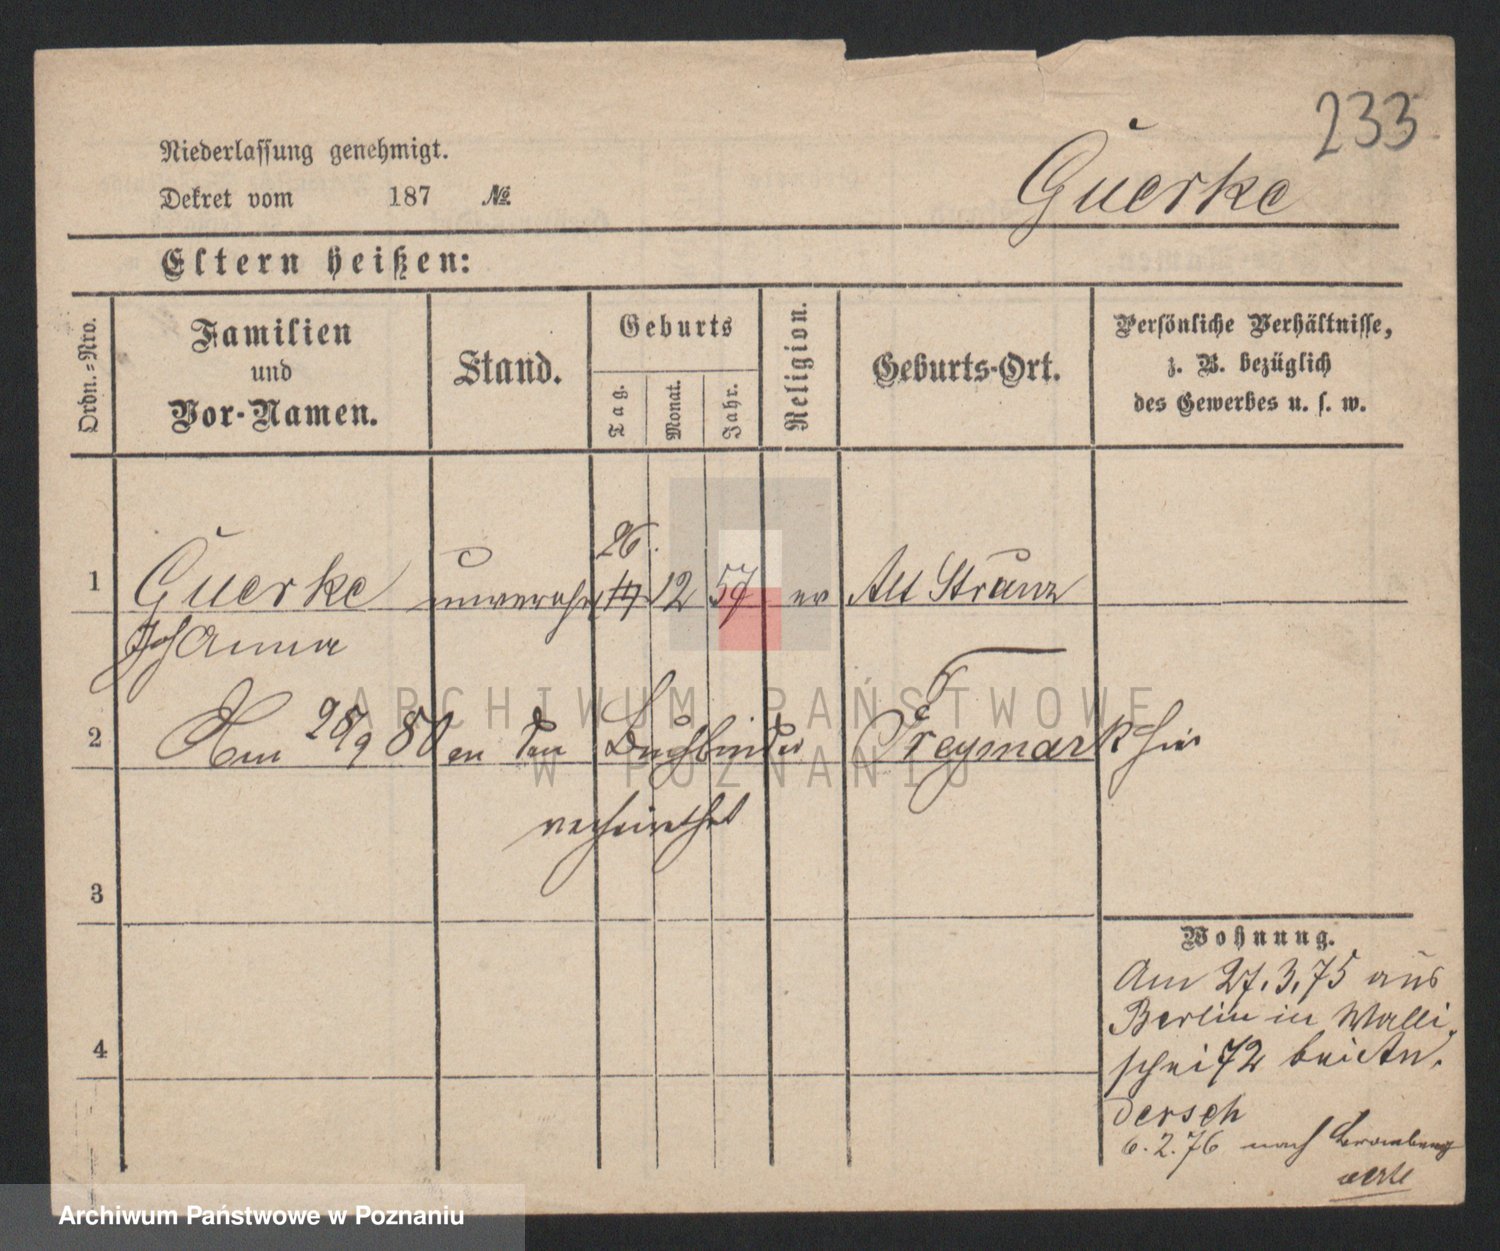 233
Niederlassung genehmigt.
Dekret vom 187 №
Guerke
Eltern heißen:
Ordn.-Nro.
Familien
und
Vor-Namen.
Stand.
Geburts
Tag.
Monat.
Jahr.
Religion.
Geburts-Ort.
Persönliche Verhältnisse,
z. B. bezüglich
des Gewerbes u. s. w.
26.
1 Guerke unvereh 12 57 ev Alt Stranz
Johanna
2 Am 25/9 80 an den Buchbinder Freymark hier
verheirathet
3
4
Wohnung.
Am 27.3.75 aus
Berlin in Walli,
schei 72 bei An,
dersch
6.2.76 nach Bromberg
ARCHIWUM PAŃSTWOWE
W POZNANIU
Archiwum Państwowe w Poznaniu